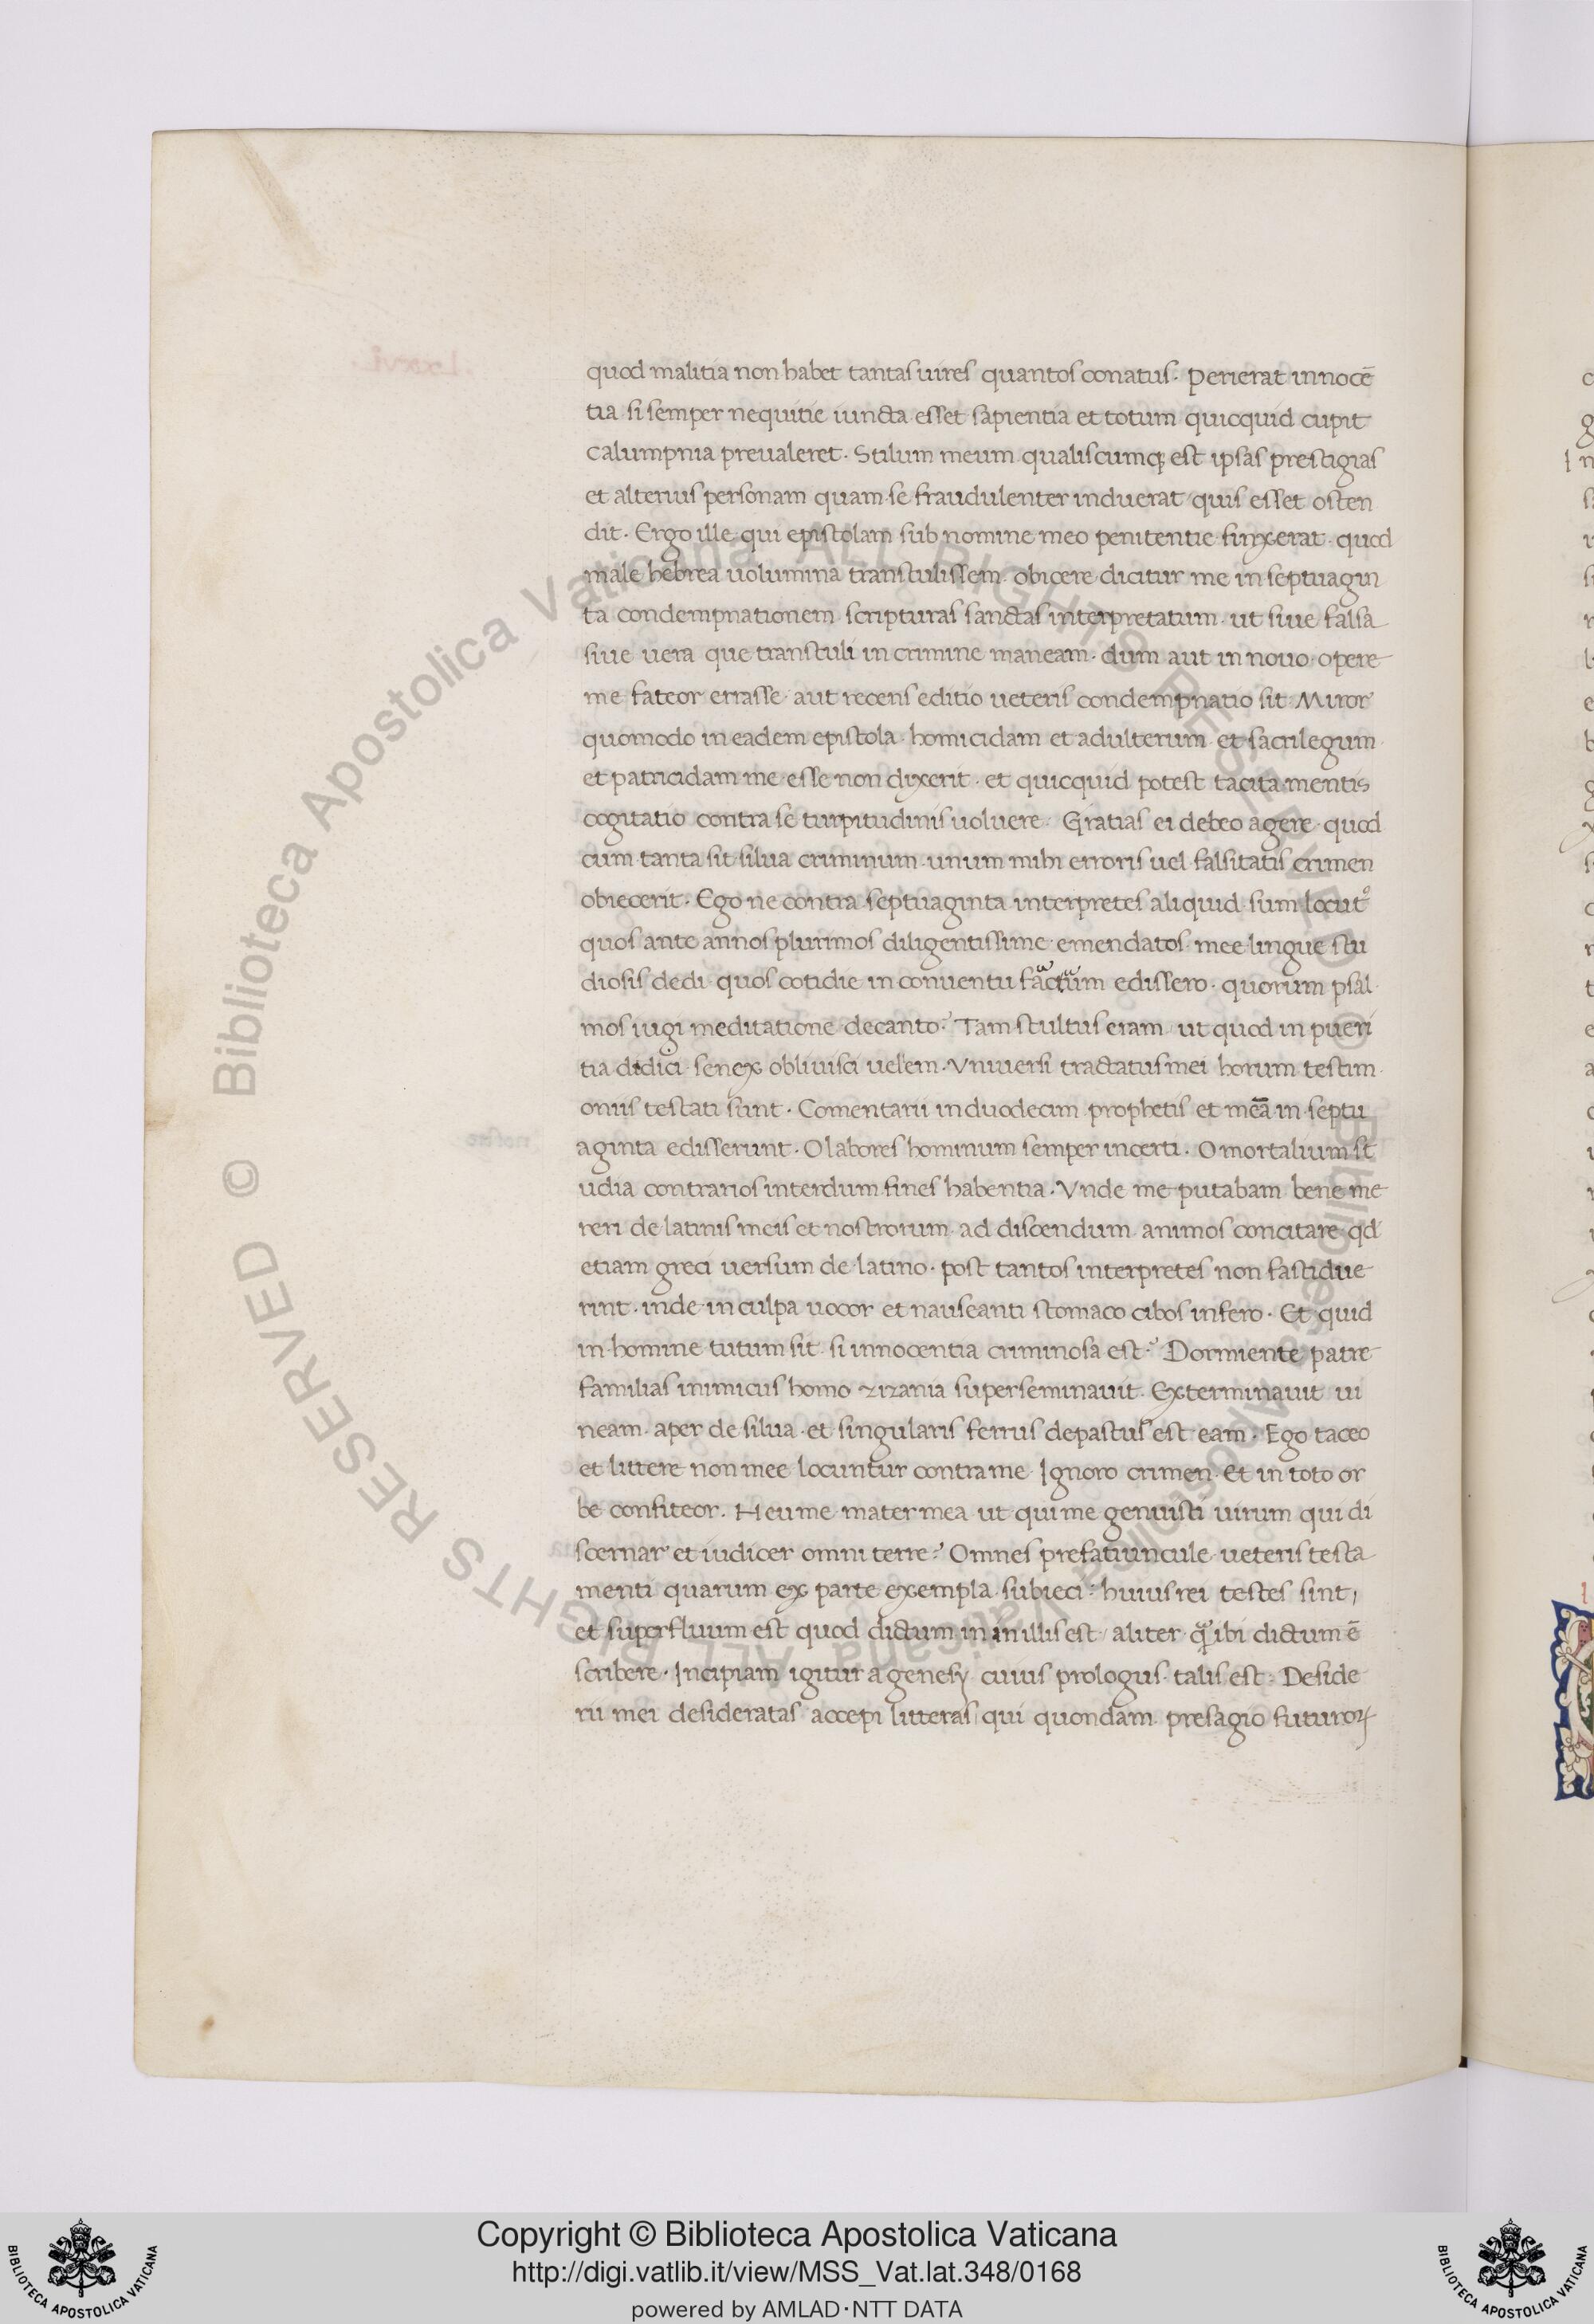 quod malitia non habet tantas uires quantos conatus. Perierat innocē
tia si semper nequitie iuncta esset sapientia et totum quicquid cupit
calumpnia preualeret. Stilum meum qualiscumq; est ipsas prestigias
et alterius personam quam se fraudulenter induerat quis esset osten
dit. Ergo ille qui epistolam sub nomine meo penitentie finxerat quod
male hebrea uolumina transtulissem obicere dicitur me in septuagin
ta condempnationem scripturas sanctas interpretatum. ut siue falsa
siue uera que transtuli in crimine maneam. dum aut in nouo opere
me fateor errasse aut recens editio ueteris condempnatio sit. Miror
quomodo in eadem epistola homicidam et adulterum et sacrilegum
et patricidam me esse non dixerit. et quicquid potest tacita mentis
cogitatio contra se turpitudinis uoluere. Gratias ei debeo agere quod
cum tanta sit silua criminum unum mihi erroris uel falsitatis crimen
obiecerit. Ego ne contra septuaginta interpretes aliquid sum locutꝰ
quos ante annos plurimos diligentissime emendatos mee lingue stu
diosis dedi quos cotidie in conuentu edissero. quorum psal
mos iugi meditatione decanto? Tam stultus eram ut quod in pueri
tia didici senex obliuisci uelem. Vniuersi tractatus mei horum testim
oniis testati sunt. Comentarii in duodecim prophetis et meā in septu
aginta edisserunt. O labores hominum semper incerti. O mortalium st
udia contrarios interdum fines habentia. Vnde me putabam bene me
reri de latinis meis et nostrorum ad discendum animos concitare qd
etiam greci uersum de latino. post tantos interpretes non fastidue
rint. inde in culpa uocor et nauseanti stomaco cibos infero. Et quid
in homine tutum sit si innocentia criminosa est? Dormiente patre
familias inimicus homo zizania superseminauit. Exterminauit ui
neam aper de silua et singularis ferrus depastus est eam. Ego taceo
et littere non mee locuntur contra me. Ignoro crimen. Et in toto or
be confiteor. Heu me mater mea ut qui me genuisti uirum qui di
scernar et iudicer omni terre? Omnes prefatiuncule ueteris testa
menti quarum ex parte exempla subieci: huius rei testes sint,
et superfluum est quod dictum in in illis est, aliter ibi dictum ē
scribere. Incipiam igitur a genesy cuius prologus talis est: Deside
rii mei desideratas accepi litteras qui quondam presagio futuroꝝ
© Biblioteca Apostolica Vaticana ALL RIGHTS RESERVED
© Biblioteca Apostolica Vaticana ALL RIGHTS RESERVED
Copyright © Biblioteca Apostolica Vaticana
http://digi.vatlib.it/view/MSS_Vat.lat.348/0168
powered by AMLAD·NTT DATA
BIBLIOTECA APOSTOLICA VATICANA
BIBLIOTECA APOSTOLICA VATICANA